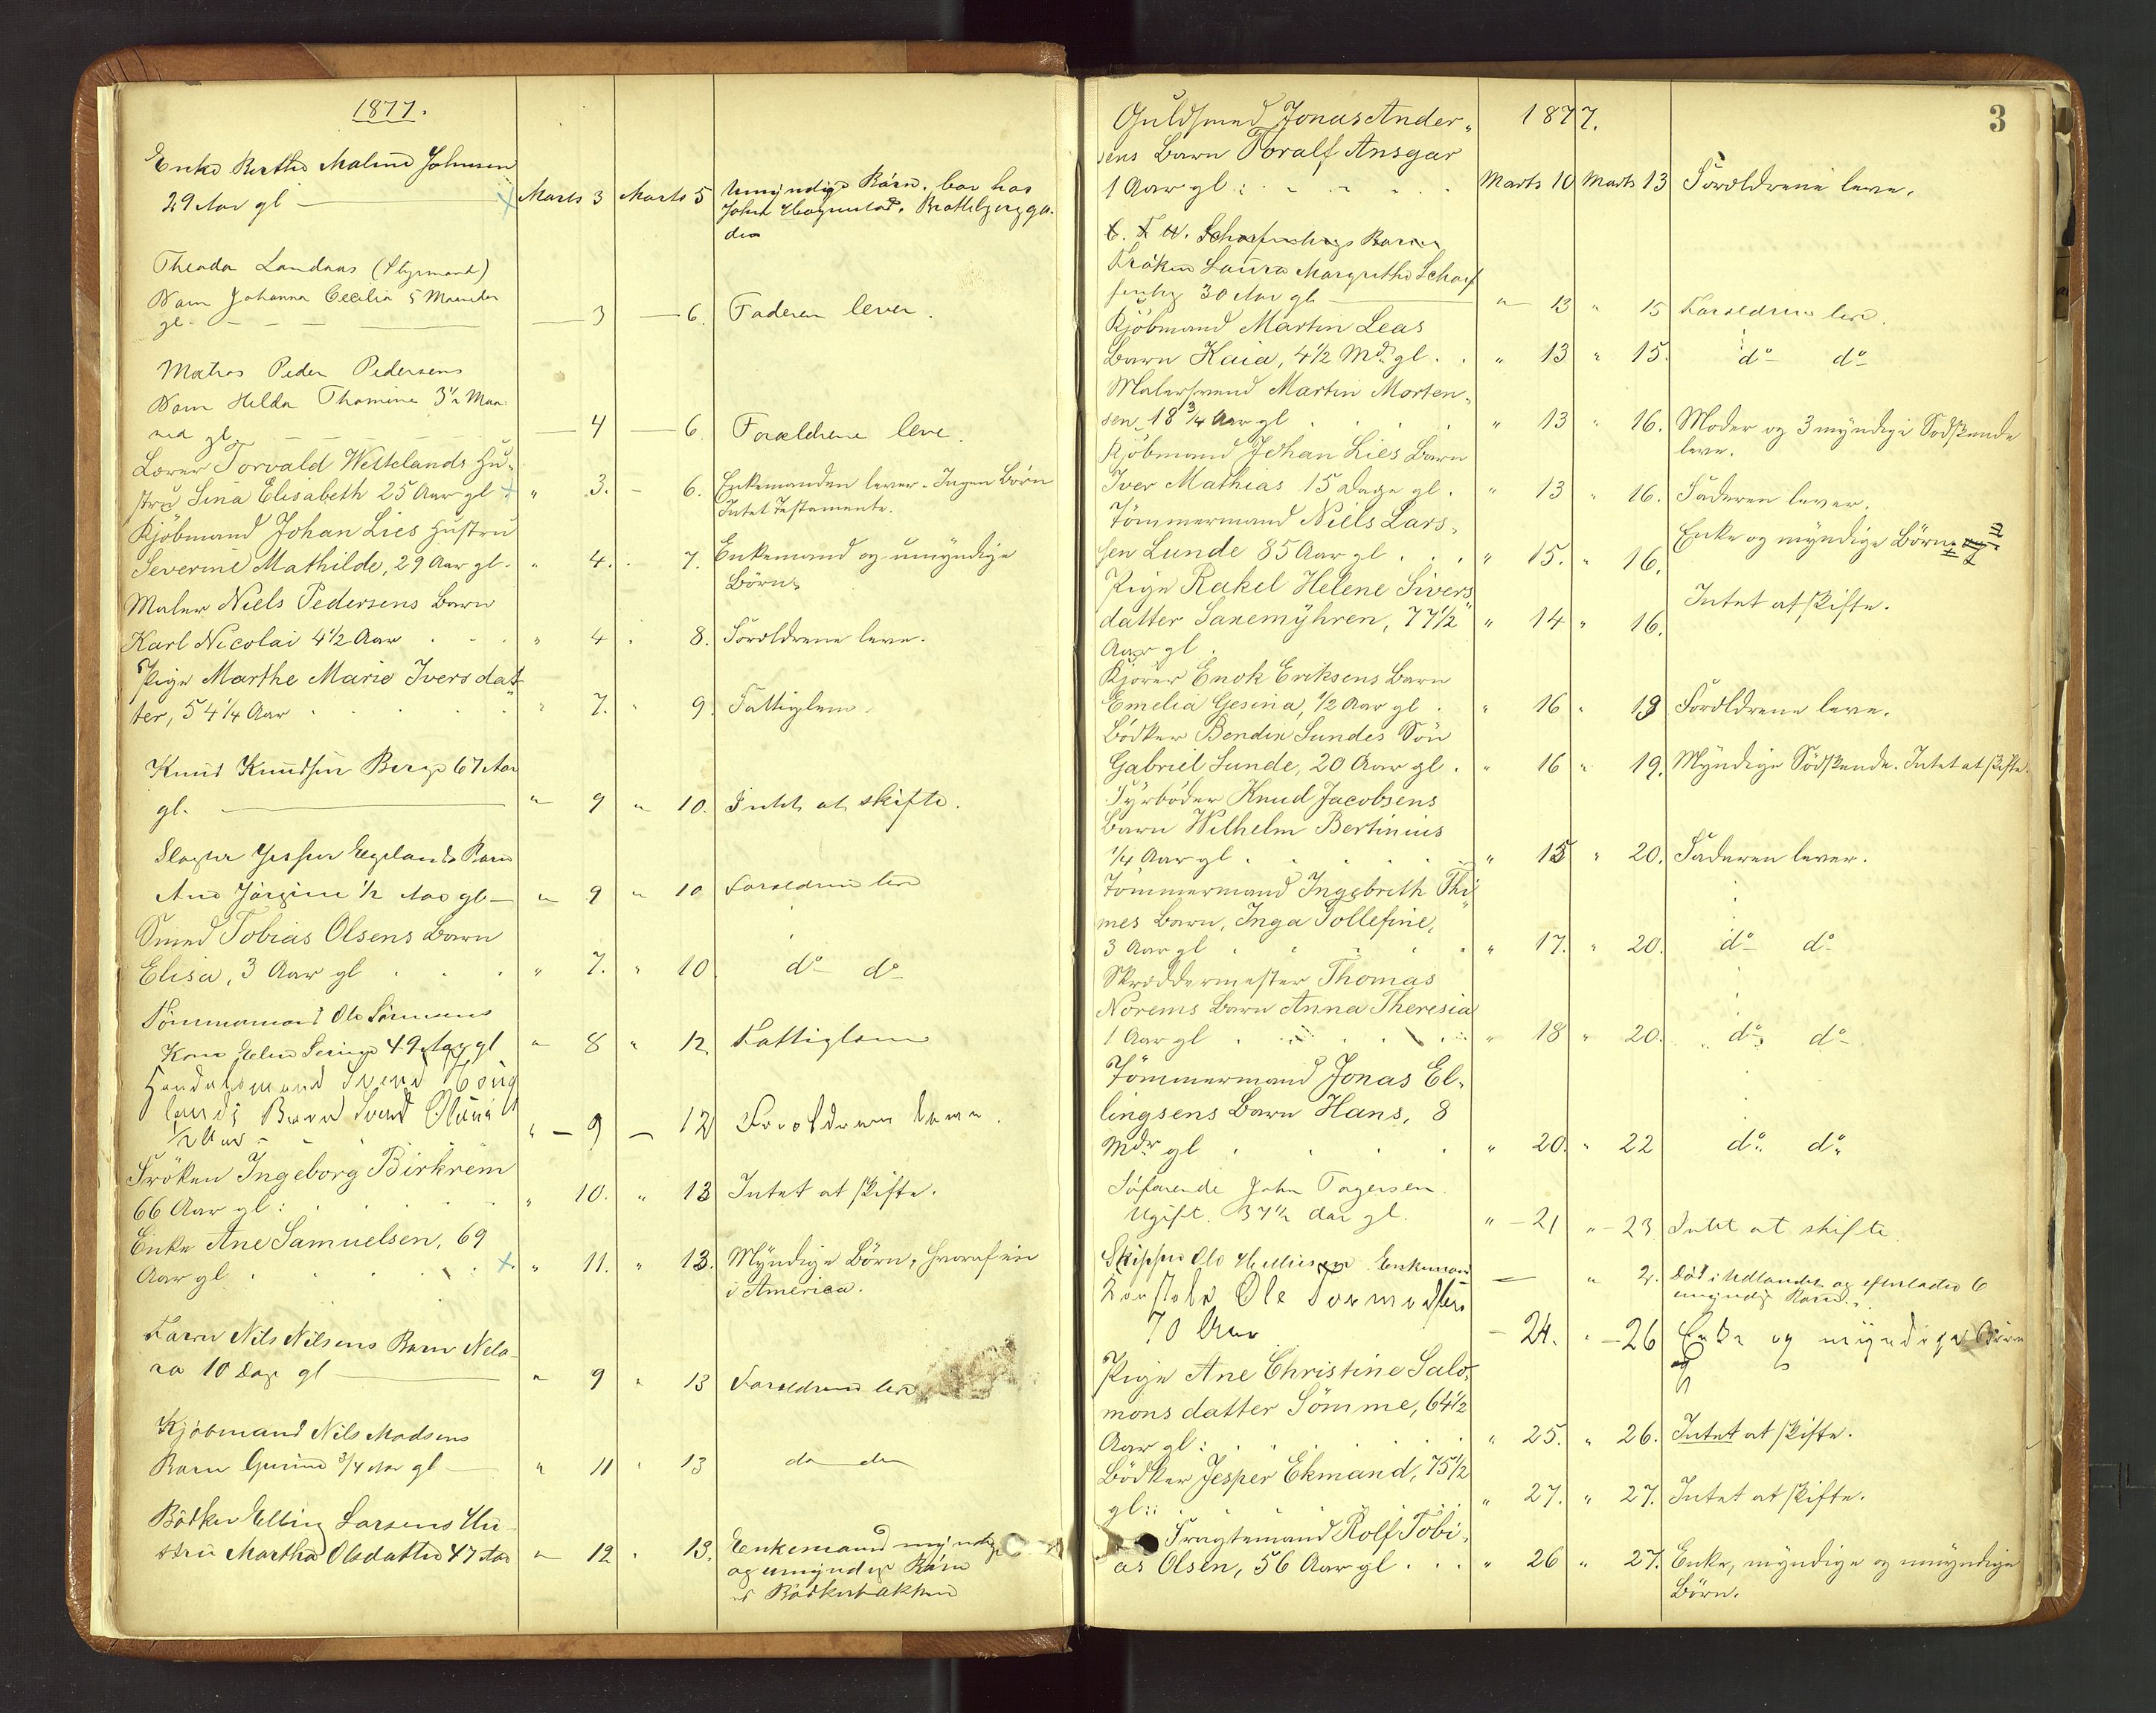 1877.
Enke Berthe Malene Johnsen
29 Aar gl — Marts 3 Marts 5 Umyndige Børn, bor hos
John
Theodor Landaas (Styrmand)
Barn Johanna Cecilia 5 Maaneder
gl. — — — 3 — 6. Faderen lever.
Matros Peder Pedersens
Barn Helda Thomine 3½ Maa-
ned gl. — 4 — 6. Forældrene leve.
Lærer Torvald Westelands Hu-
stru Sina Elisabeth 25 Aar gl " 3. - 6. Enkemanden lever. Ingen Børn
Intet Testamente.
Kjöbmand Johan Lies Hustru
Severine Mathilde, 29 Aar gl. " 4. . 7. Enkemand og umyndige
Börn.
Maler Niels Pedersens Barn
Karl Nicolai 4½ Aar . . . " 4 . 8. Forældrene leve.
Pige Marthe Marie Iversdat-
ter, 54¼ Aar . . . " 7. " 9. Fattiglem.
Knud Knudsen Berge 67 Aar
gl. — " 9 " 10. Intet at skifte.
Slagter Jesper Egelands Barn
Ane Jörgine ½ Aar gl — " 9 " 10 Forældrene leve
Smed Tobias Olsens Barn
Elisa, 3 Aar gl . . . " 7. " 10 do do
Tömmermand Ole
Kone 49 Aar gl " 8 " 12 Fattiglem
Handelsmand Svend
lands Barn Svend
½ Aar - " — 9 — 12 Forældrene leve.
Fröken Ingeborg Birkrem
66 Aar gl: . . . " 10. " 13 Intet at skifte.
Enke Ane Samuelsen, 69
Aar gl . . . " 11. " 13. Myndige Börn, hvoraf een
i America.
Nils Nilsens Barn
10 Dage gl — " 9 " 13 Forældrene leve
Kjöbmand Nils Madsens
Barn ¾ Aar gl — " 11 " 13 do do
Bödker Elling Larsens Hu-
stru Martha Olsdatter 47 Aar " 12 " 13. Enkemand myndige
og umyndige Börn
Bödkerbakken
3
Guldsmed Jonas Ander- 1877.
sens Barn Toralf Ansgar
1 Aar gl: . - - . . Marts 10 Marts 13 Forældrene leve.
Fröken Laura Margrethe Scharf
fenberg 30 Aar gl. — " 13 " 15 Forældrene leve.
Kjöbmand Martin Leas
Barn Kaia, 4½ Mdr gl. . " 13 " 15. do do
Malersvend Martin Morten-
sen, 18¾ Aar gl . . . . " 13 " 16. Moder og 3 myndige Södskende
leve.
Kjöbmand Johan Lies Barn
Iver Mathias 15 Dage gl. " 13 " 16. Faderen lever.
Tömmermand Niels Lars-
sen Lunde 85 Aar gl . . . " 15. " 16. Enke og myndige Börn.
Pige Rakel Helene Sivers
datter Sanemyhren, 77½ " 14 " 16. Intet at skifte.
Aar gl .
Kjörer Enok Eriksens Barn
Emelia Gesina, ½ Aar gl . " 16 " 19 Forældrene leve.
Bödker Bendix Sundes Sön
Gabriel Sunde, 20 Aar gl . " 16 " 19. Myndige Södskende. Intet at skifte.
Fyrböder Knud Jacobsens
Barn Wilhelm Bertinius
¼ Aar gl . . . . . " 15 " 20. Faderen lever.
Tömmermand Ingebrith Thi-
mes Barn, Inga Tollefine,
3 Aar gl . . . . . " 17. " 20. do do
Skræddermester Thomas
Norems Barn Anna Theresia
1 Aar gl . . . . . " 18 " 20. do do
Tömmermand Jonas El-
lingsens Barn Hans, 8
Mdr gl . . . . " 20. " 22 do do
Söfarende John Tagersen
Ugift. 37½ Aar gl. " — 21 " — 23. Intet at skifte
Skipper Ole Enkemand — " 2. Död i Udlandet og efterlader 6
umyndige Börn.
Ole Tormodsen
70 Aar — 24. . — 26 Enke og myndige Börn
Pige Ane Christine Salo-
mons datter Sömme, 64½
Aar gl: . . . . . " 25. " 26. Intet at skifte.
Bödker Jesper Ekmand, 75½
gl: . . . . . " 27. " 27. Intet at skifte.
Fragtemand Rolf Tobi-
as Olsen, 56 Aar gl . . . " 26 " 27. Enke, myndige og umyndige
Börn.